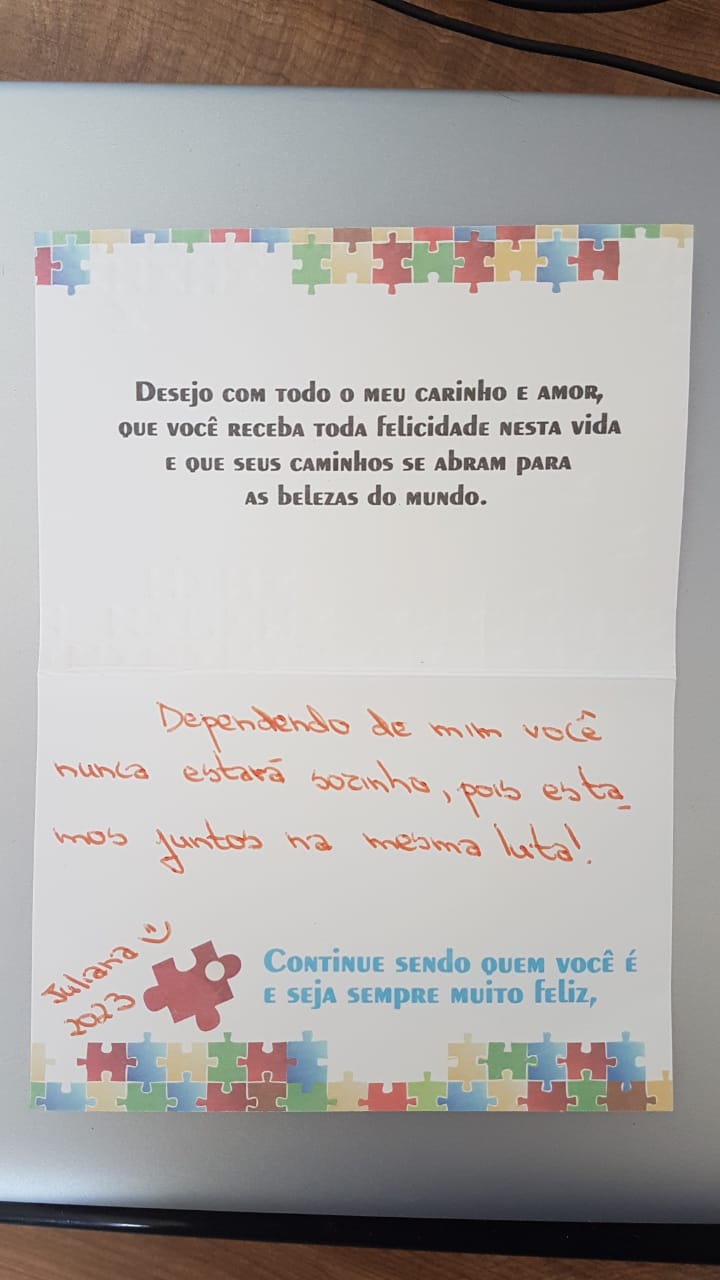 Desejo com todo o meu carinho e amor,
que você receba toda felicidade nesta vida
e que seus caminhos se abram para
as belezas do mundo.
Dependendo de mim você
nunca estará sozinho, pois esta_
mos juntos na mesma luta!
Juliana
2023
Continue sendo quem você é
e seja sempre muito feliz,